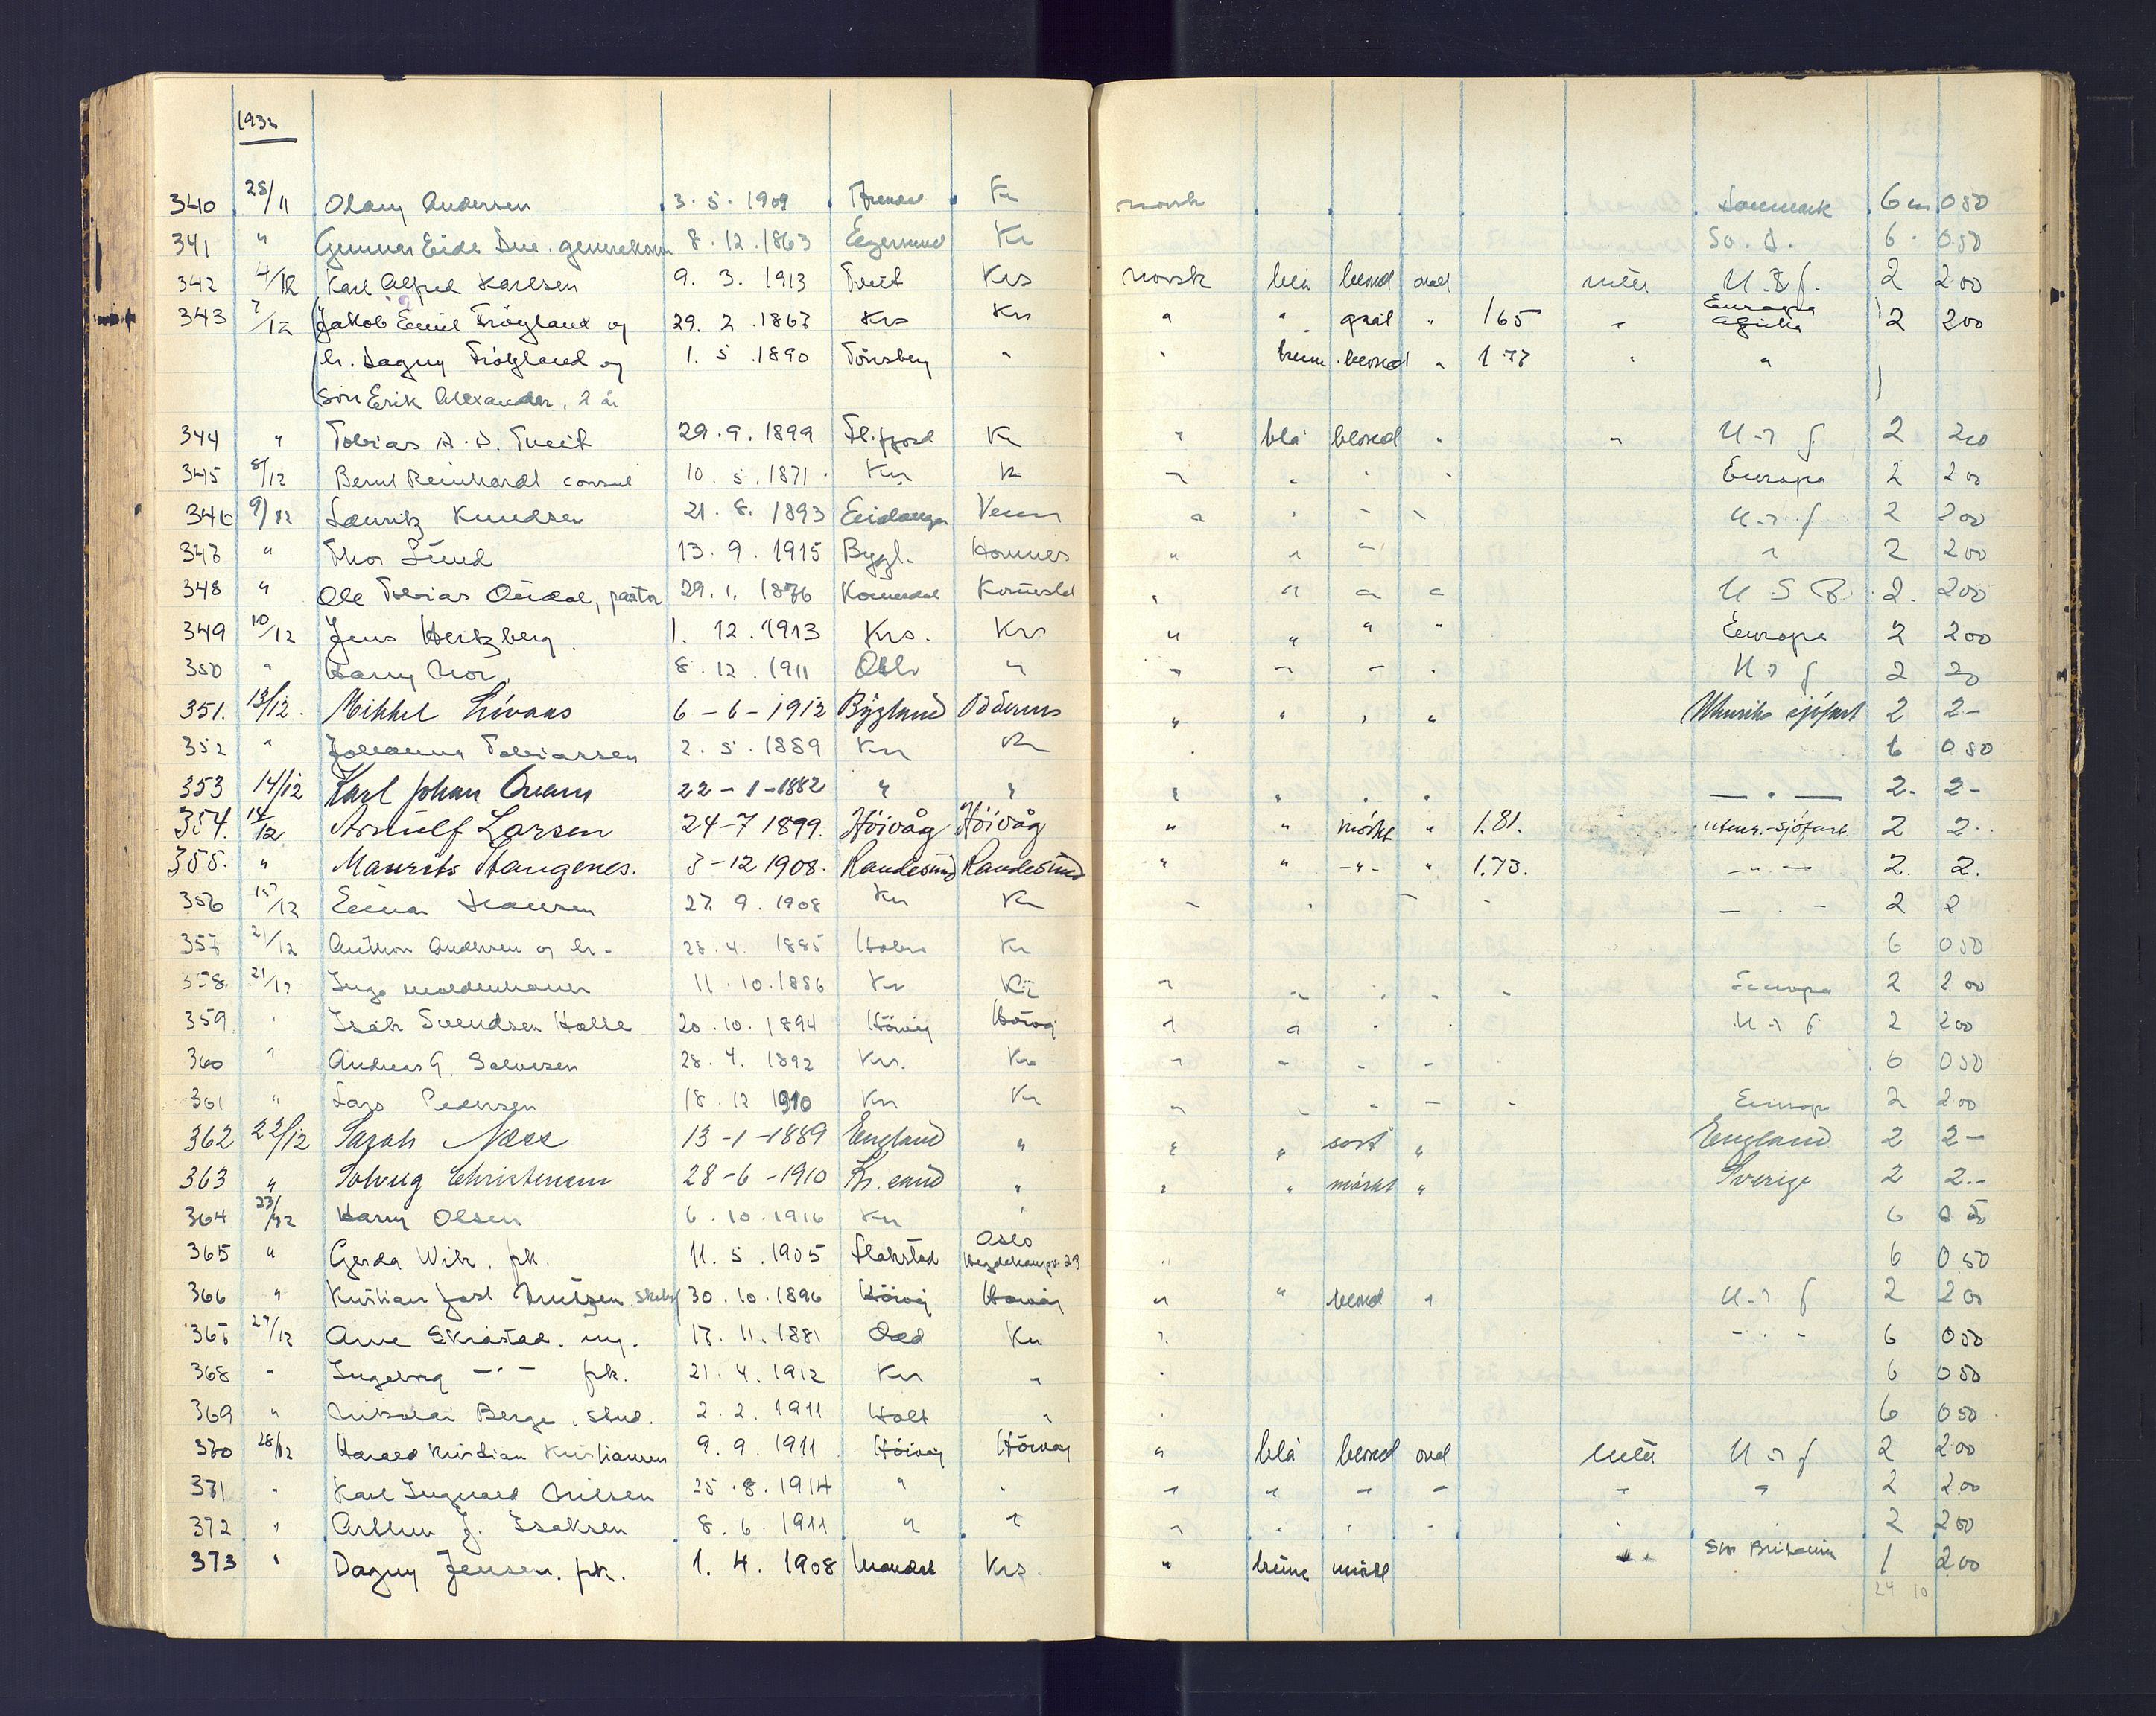 1932
340 28/11 Olaug Andersen 3.5.1909 Arendal Kr norsk Danmark 6 m 0 50
341 " Gunnar Eide 8.12.1863 Egersund Kr So. A. 6 0.50
342 4/12 Karl Alfred Karlsen 9.3.1913 Tveit Krs norsk blå blond oval intet 2 2.00
343 7/12 Jakob Emil Frøyland og 29.2.1867 Krs Krs " " grål " 165 " Europa 2 200
h. Dagny Frøyland og 1.5.1890 Tönsberg " " brun blond " 1 77 " "
sön Erik Alexander, 2 år
344 " Tobias A. D. Tveit 29.9.1899 Fl.fjord Kr " blå blond " " U-n f. 2 200
345 8/12 Bernt Reinhardt consul 10.5.1871 Kr Kr " " " " Europa 2 2 00
346 9/12 Lauritz Knudsen 21.8.1893 Eidanger " " " " U-n f 2 200
347 " Thor Lund 13.9.1915 Bygl. Hornnes " " " " 2 200
348 " Ole Tobias Øidal, pastor 29.1.1876 " " " " U S 2. 200
349 10/12 Jens Hertzberg 1.12.1913 Krs. Krs " " " " Europa 2 200
350 " Harry Mor. 8.12.1911 Oslo " " " " " U n f 2 20
351. 13/12. Mikkel Livaas 6-6-1912 Bygland Oddernes " " " " Utenriks sjöfart 2 2-
352 " Johanna Tobiassen 2.5.1889 Kr Kr " 6 0.50
353 14/12 Karl Johan Qvam 22-1-1882 " " " " " " — " — 2. 2-
354. 14/12 Arnulf Larsen 24-7 1899. Höivåg Höivåg " " mörkt " 1.81. utenr.-sjöfart 2 2..
355. " Maurits Stangenes. 3-12 1908. Randesund Randesund " " -"- " 1.73. -"- 2. 2.
356 15/12 Einar Hansen 27.9.1908 Kr Kr " " " " — " — 2 2
357 21/12 Anthon Andersen og h. 28.4.1885 Kr 6 0 50
358. 21/12 Inga Moldenhauer 11.10.1886 Kr Kr " " " " " Europa 2 2 00
359 " Isak Svendsen Halle 20.10.1894 Höivåg Höivåg " " " " U n f 2 200
360 " Andreas G. Salvesen 28.4.1892 Krs. Kr " " " " 6 0 50
361 " Lars Pedersen 18.12 1910 Kr Kr " " " " " Europa 2 2.00
362 22/12 Sarah Næss 13-1-1889 England " " " sort " England 2 2-
363 " Solveig Christensen 28-6-1910 Kr.sund " " " mörkt " Sverige 2 2.-
364 23/12 Harry Olsen 6.10.1916 Kr " 6
365 " Gerda Wik. frk. 11.5.1905 Flakstad Oslo 29 6 0.50
366 " Kristian Jarl Knutzen 30.10.1896 Höivåg Höivåg " " blond " U-n f 2 2 00
367 27/12 Arne Skråstad. ing. 17.11.1881 Kr " — " — 6 0 50
368 " Ingeborg — " — frk. 21.4.1912 Kr " " 6 0 50
369 " Nikolai Berge. stud. 2.2.1911 Holt " " 6 0 50
370 28/12 Harald Kristian Kristiansen 9.9.1911 Höivåg Höivåg " blå blond oval intet U n f 2 2.00
371 " Karl Ingvald Nilsen 25.8.1914 " " " " " " " " 2 2.00
372 " Arthur J. Isaksen 8.6.1911 " " " " " " " 2 200
373 " Dagny Jensen. frk. 1.4.1908 Mandal Krs. " brune mörkt " Stor Britannia 1 2.00
24 10